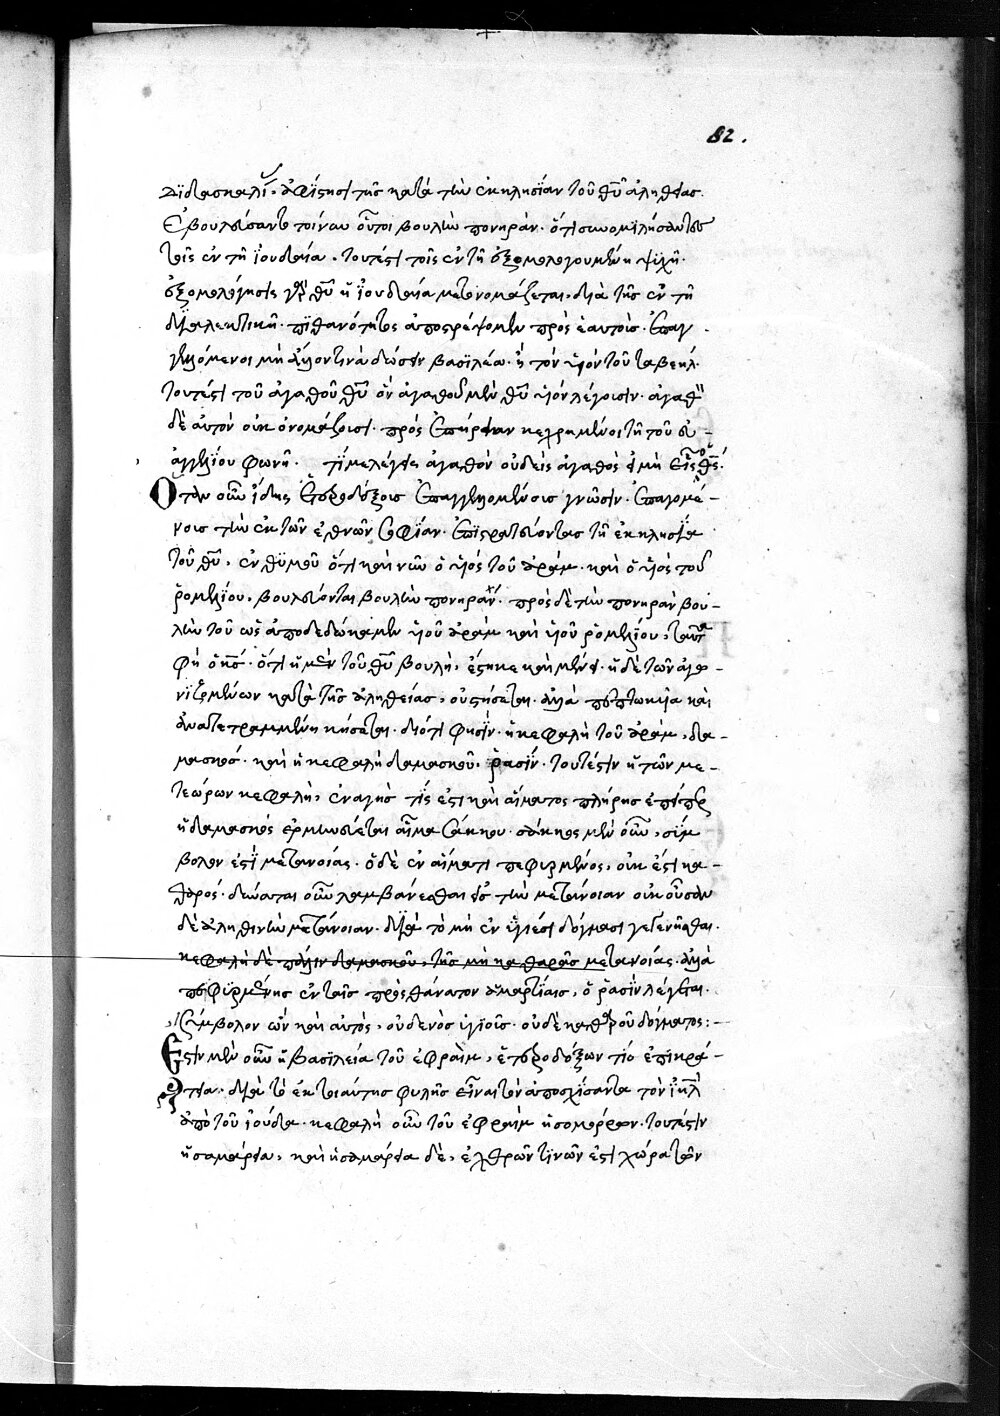 82.
διδασκαλί. ἀφίστησι τῆς κατὰ τὴν ἐκκλησίαν τοῦ θῦ ἀληθείας.
Ἐβουλεύσαντο τοίνυν οὗτοι βουλὴν πονηράν. ὅτι συνομιλήσαντες
τοῖς ἐν τῇ ἰουδαία. τουτέστι τοῖς ἐν τῇ ἐξομολογουμένη ψυχῇ.
ἐξομολόγησις γὰρ θῦ ἡ ἰουδαία μετονομάζεται. διὰ τῆς ἐν τῇ
διαλεκτικῇ πιθανότητος ἀποστρέψομεν πρὸς ἑαυτούς. ἐπαγ
γελόμενοι μὴ ἄλλον τινὰ δώσειν βασιλέα. ἢ τὸν υἱὸν τοῦ ταβεήλ.
τουτέστι τοῦ ἀγαθοῦ θῦ ὃν ἀγαθοῦ μὲν θῦ υἱὸν λέγουσιν. ἀγαθὸν
δὲ αὐτὸν οὐκ ὀνομάζουσι. πρὸς ἐπήρειαν κεχρημένοι τῇ τοῦ εὐ-
αγγελίου φωνῇ. τί με λέγεις ἀγαθὸν οὐδεὶς ἀγαθὸς εἰ μὴ εἷς ὁ θς.
Ὅταν οὖν ἴδῃς ἑτεροδόξους ἐπαγγελομένους γνῶσιν. ἐπαγομέ-
νους τὴν ἐκ τῶν ἐθνῶν σοφίαν. ἐπιστρατεύοντας τῇ ἐκκλησία
τοῦ θῦ, ἐνθυμοῦ ὅτι καὶ νῦν ὁ υἱὸς τοῦ ἀράμ. καὶ ὁ υἱὸς τοῦ
ῥομελίου, βουλεύονται βουλὴν πονηράν. πρὸς δὲ τὴν πονηρὰν βου-
λὴν τοῦ ὡς ἀποδεδώκαμεν υἱοῦ ἀρὰμ καὶ υἱοῦ ῥομελίου, ταῦτα
φη ὁ κς. ὅτι ἡ μὲν τοῦ θῦ βουλὴ, ἕστηκε καὶ μένει. ἡ δὲ τῶν ἀγω-
νιζομένων κατὰ τῆς ἀληθείας, οὐ στήσεται. ἀλλὰ πεπτωκυῖα καὶ
ἀνατετραμμένη κείσεται. διότι φησὶν. ἡ κεφαλὴ τοῦ ἀράμ, δα-
μασκός. καὶ ἡ κεφαλὴ δαμασκοῦ, ῥασίν. τουτέστιν ἡ τῶν με-
τεώρων κεφαλὴ, ἐναγής τίς ἐστι καὶ αἵματος πλήρης ἐπείπερ
ἡ δαμασκὸς ἑρμηνεύεται αἷμα σάκκου. σάκκος μὲν οὖν, σύμ
βολον ἐστὶ μετανοίας. ὁ δὲ ἐν αἵματι πεφυρμένος, οὐκ ἔστι κα-
θαρός. δύναται οὖν λαμβάνεσθαι εἰς τὴν μετάνοιαν οὐκ οὖσαν
δὲ ἀληθινὴν μετάνοιαν. διὰ τὸ μὴ ἐν ὑγιέσι δόγμασι γεγενῆσθαι.
κεφαλὴ δὲ πάλιν δαμασκοῦ, τῆς μὴ καθαρᾶς μετανοίας. ἀλλὰ
πεφυρμένης ἐν ταῖς πρὸς θάνατον ἁμαρτίαις, ὁ ῥασὶν λέγεται.
σύμβολον ὢν καὶ αὐτὸς, οὐδενὸς ὑγιοῦς. οὐδὲ καθαροῦ δόγματος:-
Ἔστιν μὲν οὖν ἡ βασιλεία τοῦ ἐφραὶμ, ἑτεροδόξων τις ἐπικρά-
τεια. διὰ τὸ ἐκ τοιαύτης φυλῆς εἶναι τὸν ἀποσχίσαντα τὸν ἰηλ
ἀπὸ τοῦ ἰούδα. κεφαλὴ οὖν τοῦ ἐφραὶμ ἡ σομόρων. τουτέστιν
ἡ σαμάρεια, καὶ ἡ σαμάρεια δὲ, ἐχθρῶν τινῶν ἐστὶ χώρα τῶν